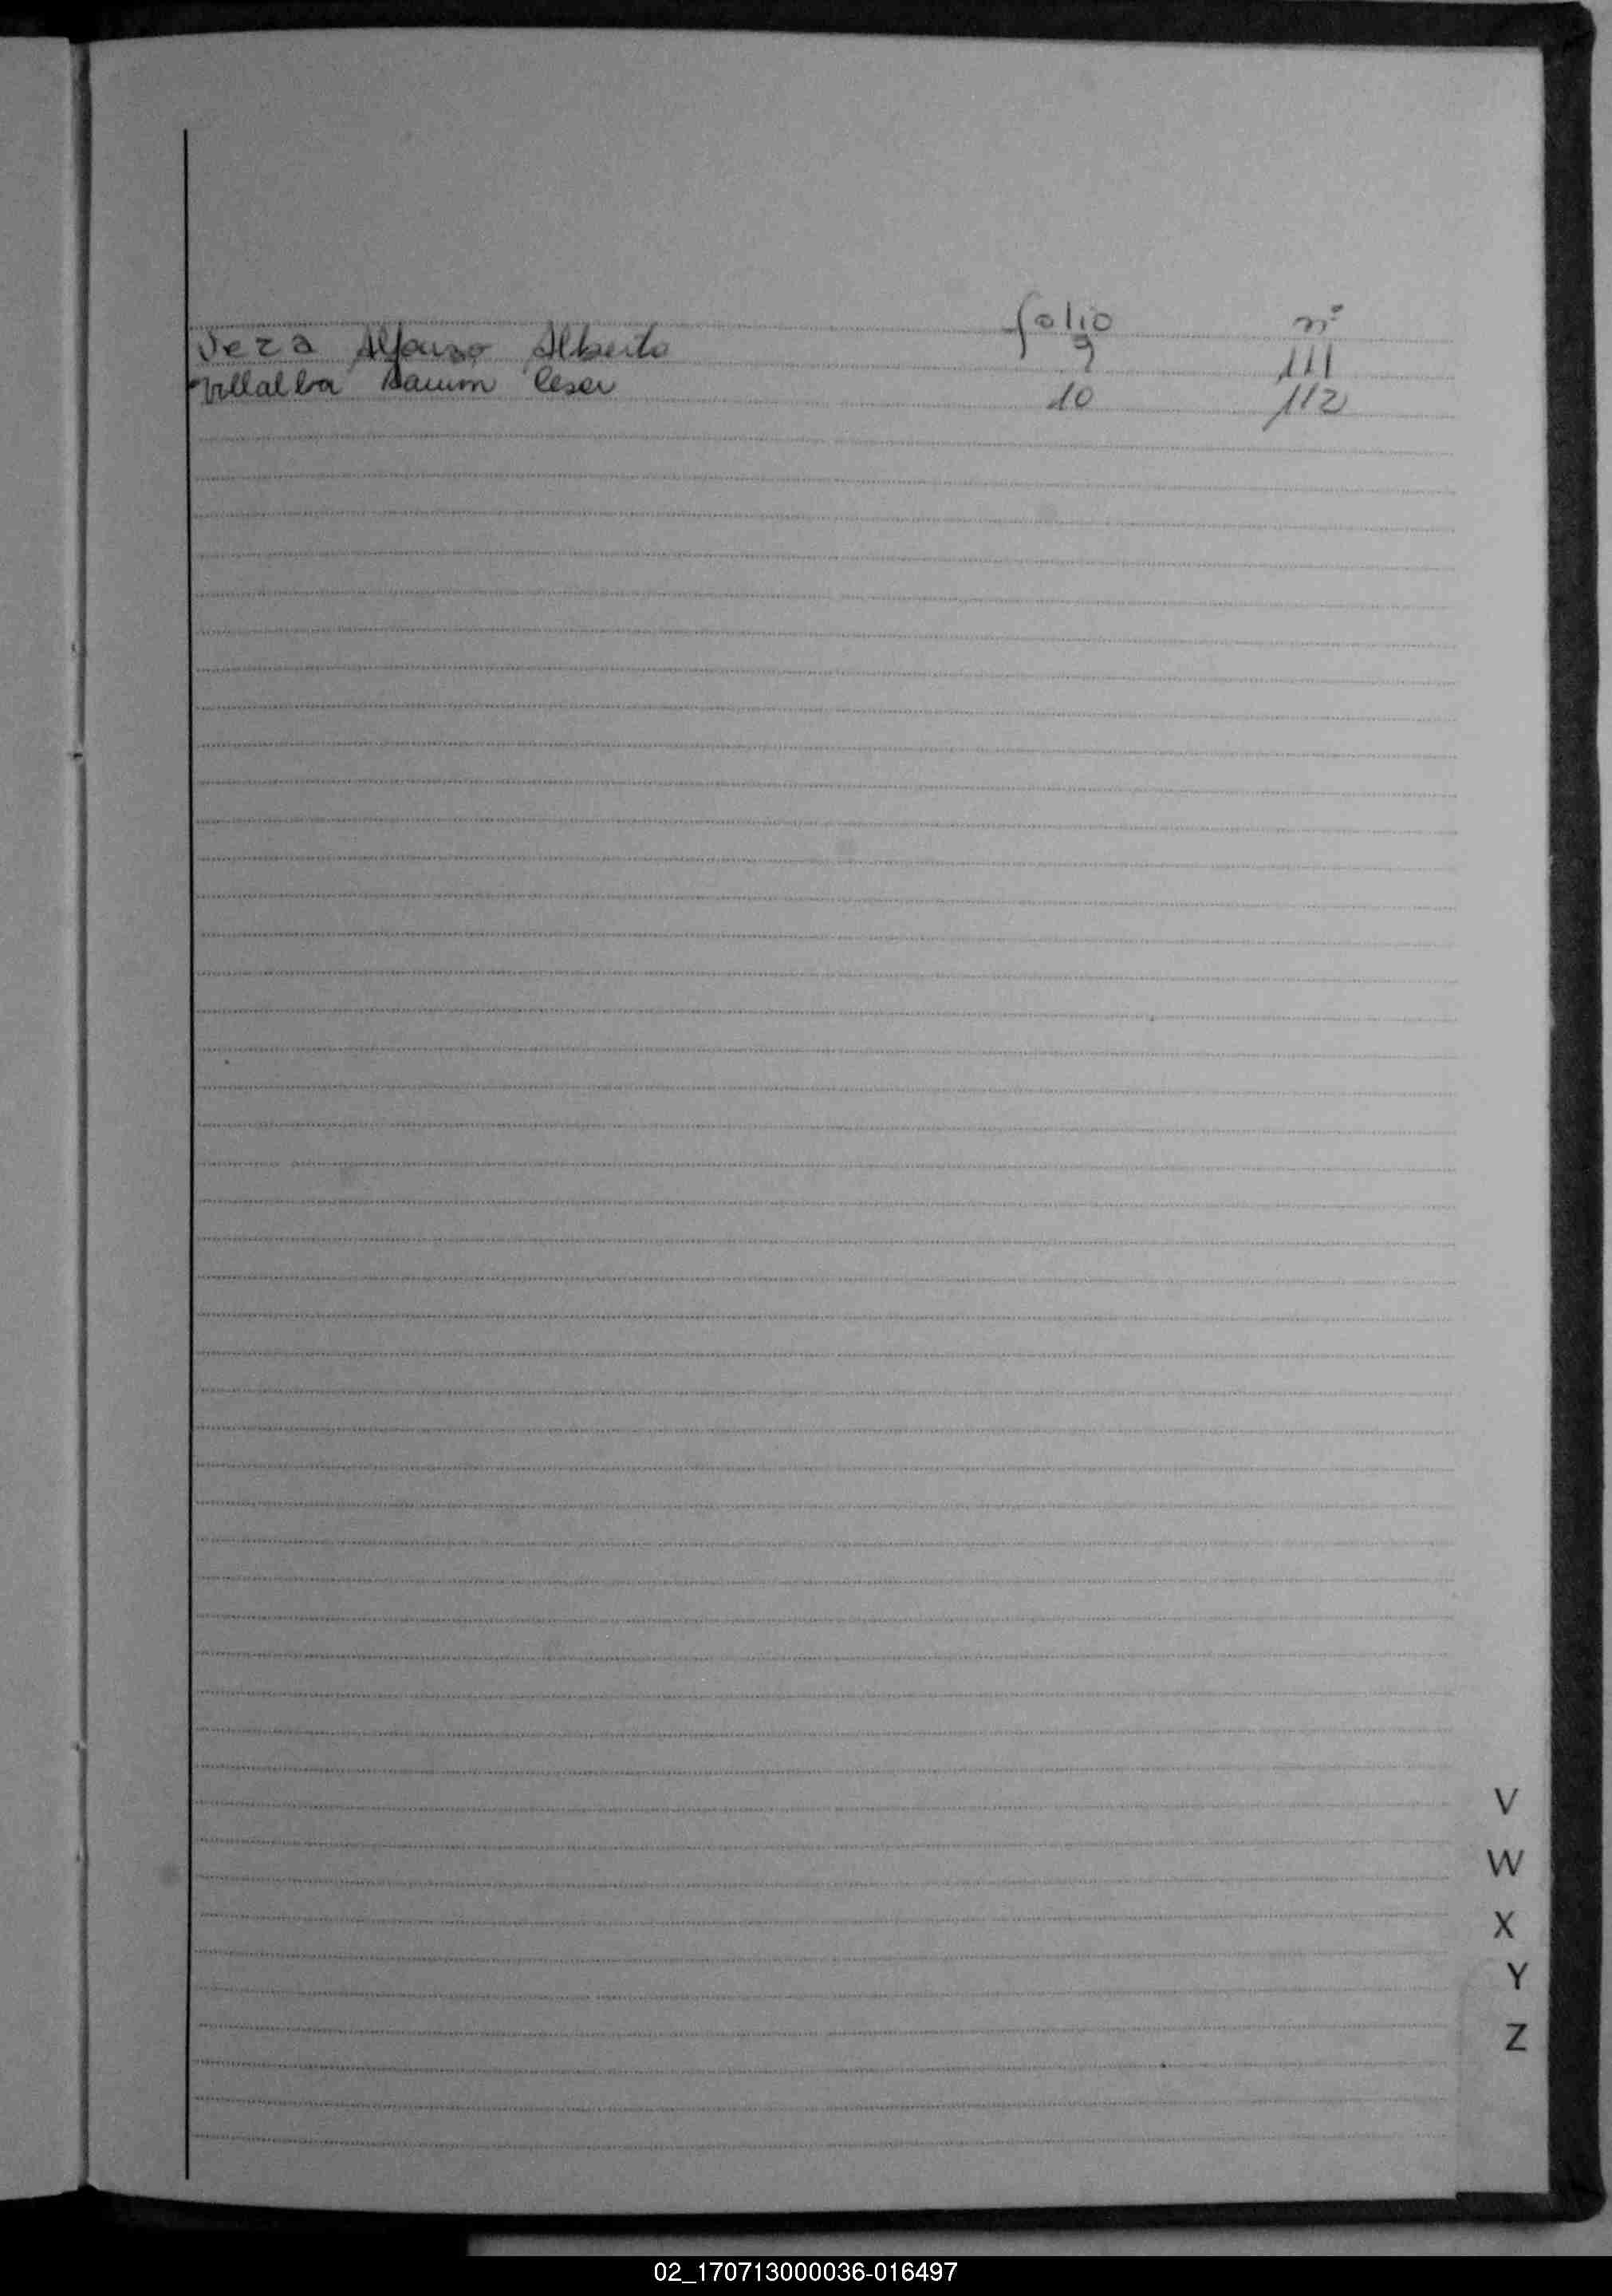 folio nº
Vera Alfonso Alberto 9 111
Villalba Ramon Cesar 10 112
V
W
X
Y
Z
02_170713000036-016497